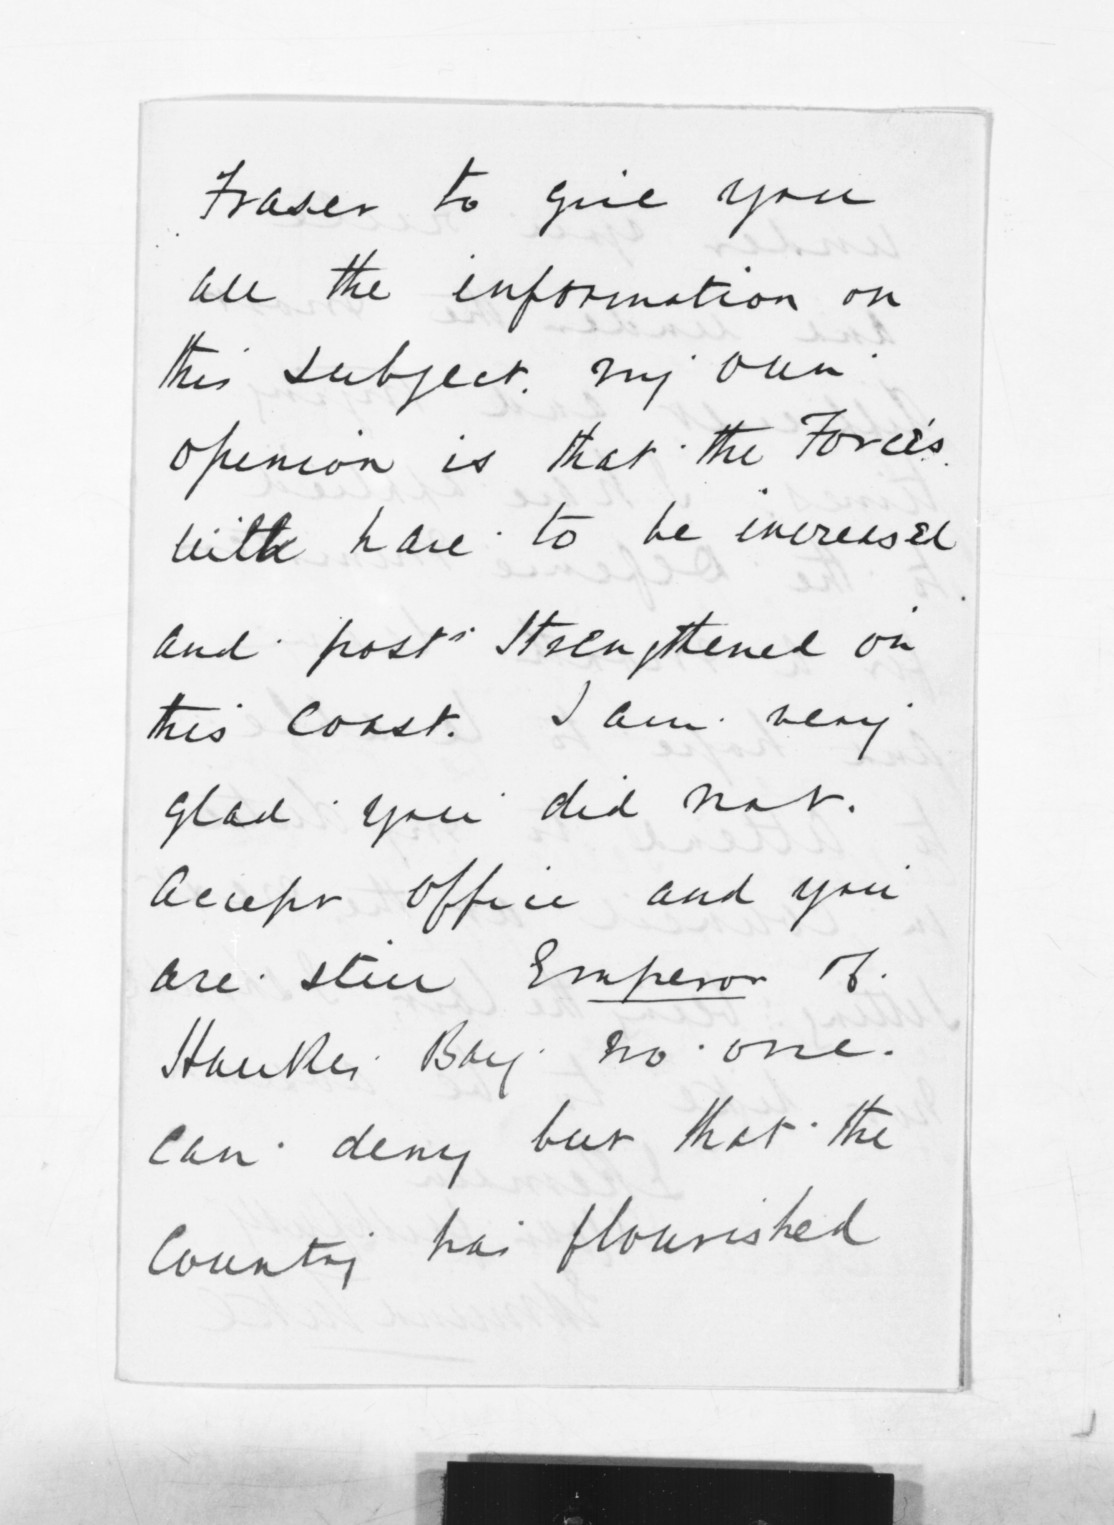 Fraser to give you
all the information on
this subject. my own
openion is that the Forces
will have to be increased
and posts Strengthened on
this Coast. I am very
glad you did not.
Accept office and you
are still Emperor of
Hawkes Bay no one.
Can deny but that the
Country has flourished